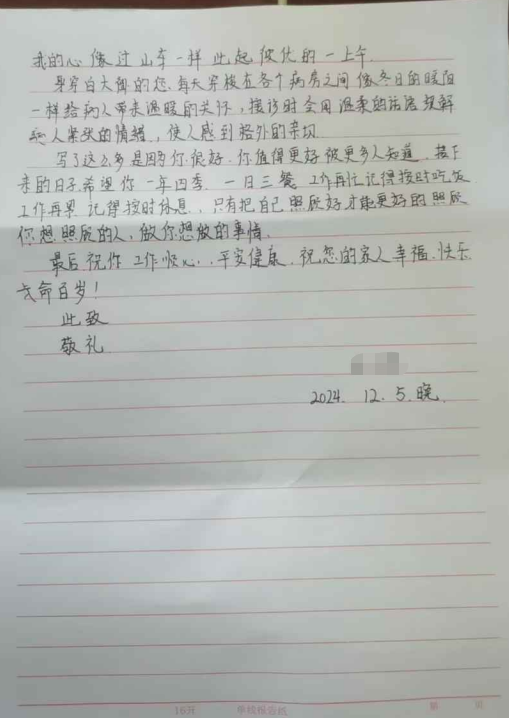 我的心像过山车一样此起彼伏的一上午.
身穿白大御的您.每天穿梭在各个病房之间像冬日的暖阳
一样给病人带来温暖的关怀,接诊时会用温柔的话语缓解
病人紧张的情绪,使人感到格外的亲切.
写了这么多是因为你很好.你值得更好被更多人知道.接下
来的日子.希望你一年四季.一日三餐.工作再忙记得按时吃饭
工作再累.记得按时休息,只有把自己照顾好才能更好的照顾
你想照顾的人,做你想做的事情.
最后祝你工作顺心..平安健康.祝您的家人幸福.快乐
长命百岁!
此致
敬礼
2024.12.5.晚.
16开 单线报告纸 第 页